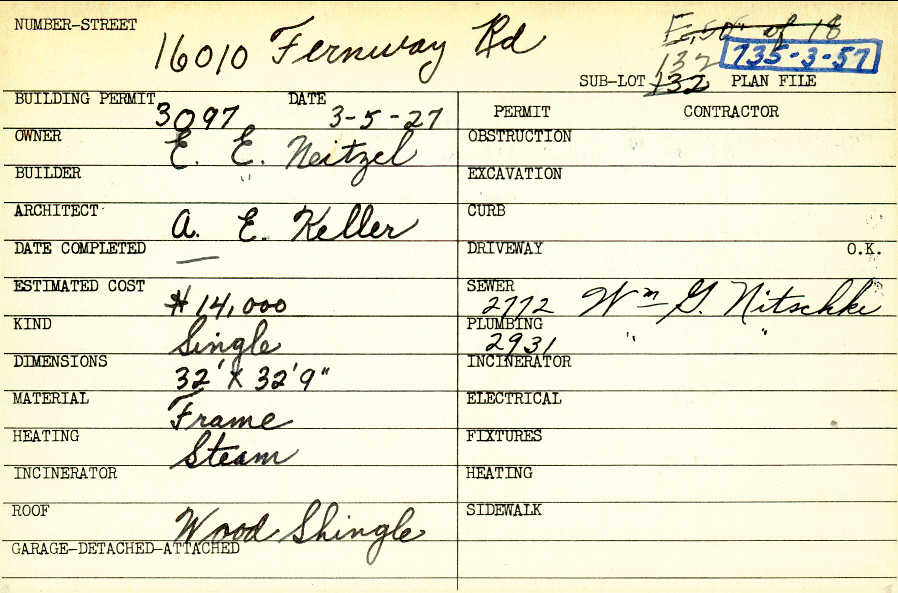 NUMBER-STREET 16010 Fernway Rd
of 18
132 735-3-57
SUB-LOT 132 PLAN FILE
BUILDING PERMIT 3097 DATE 3-5-27
PERMIT CONTRACTOR
OWNER E. E. Neitzel
OBSTRUCTION
BUILDER "
EXCAVATION
ARCHITECT A. E. Keller
CURB
DATE COMPLETED —
DRIVEWAY O.K.
ESTIMATED COST $14,000
SEWER 2772 Wm G. Nitschke
KIND Single
PLUMBING 2931 " "
DIMENSIONS 32' X 32'9"
INCINERATOR
MATERIAL Frame
ELECTRICAL
HEATING Steam
FIXTURES
INCINERATOR
HEATING
ROOF Wood Shingle
SIDEWALK
GARAGE-DETACHED-ATTACHED